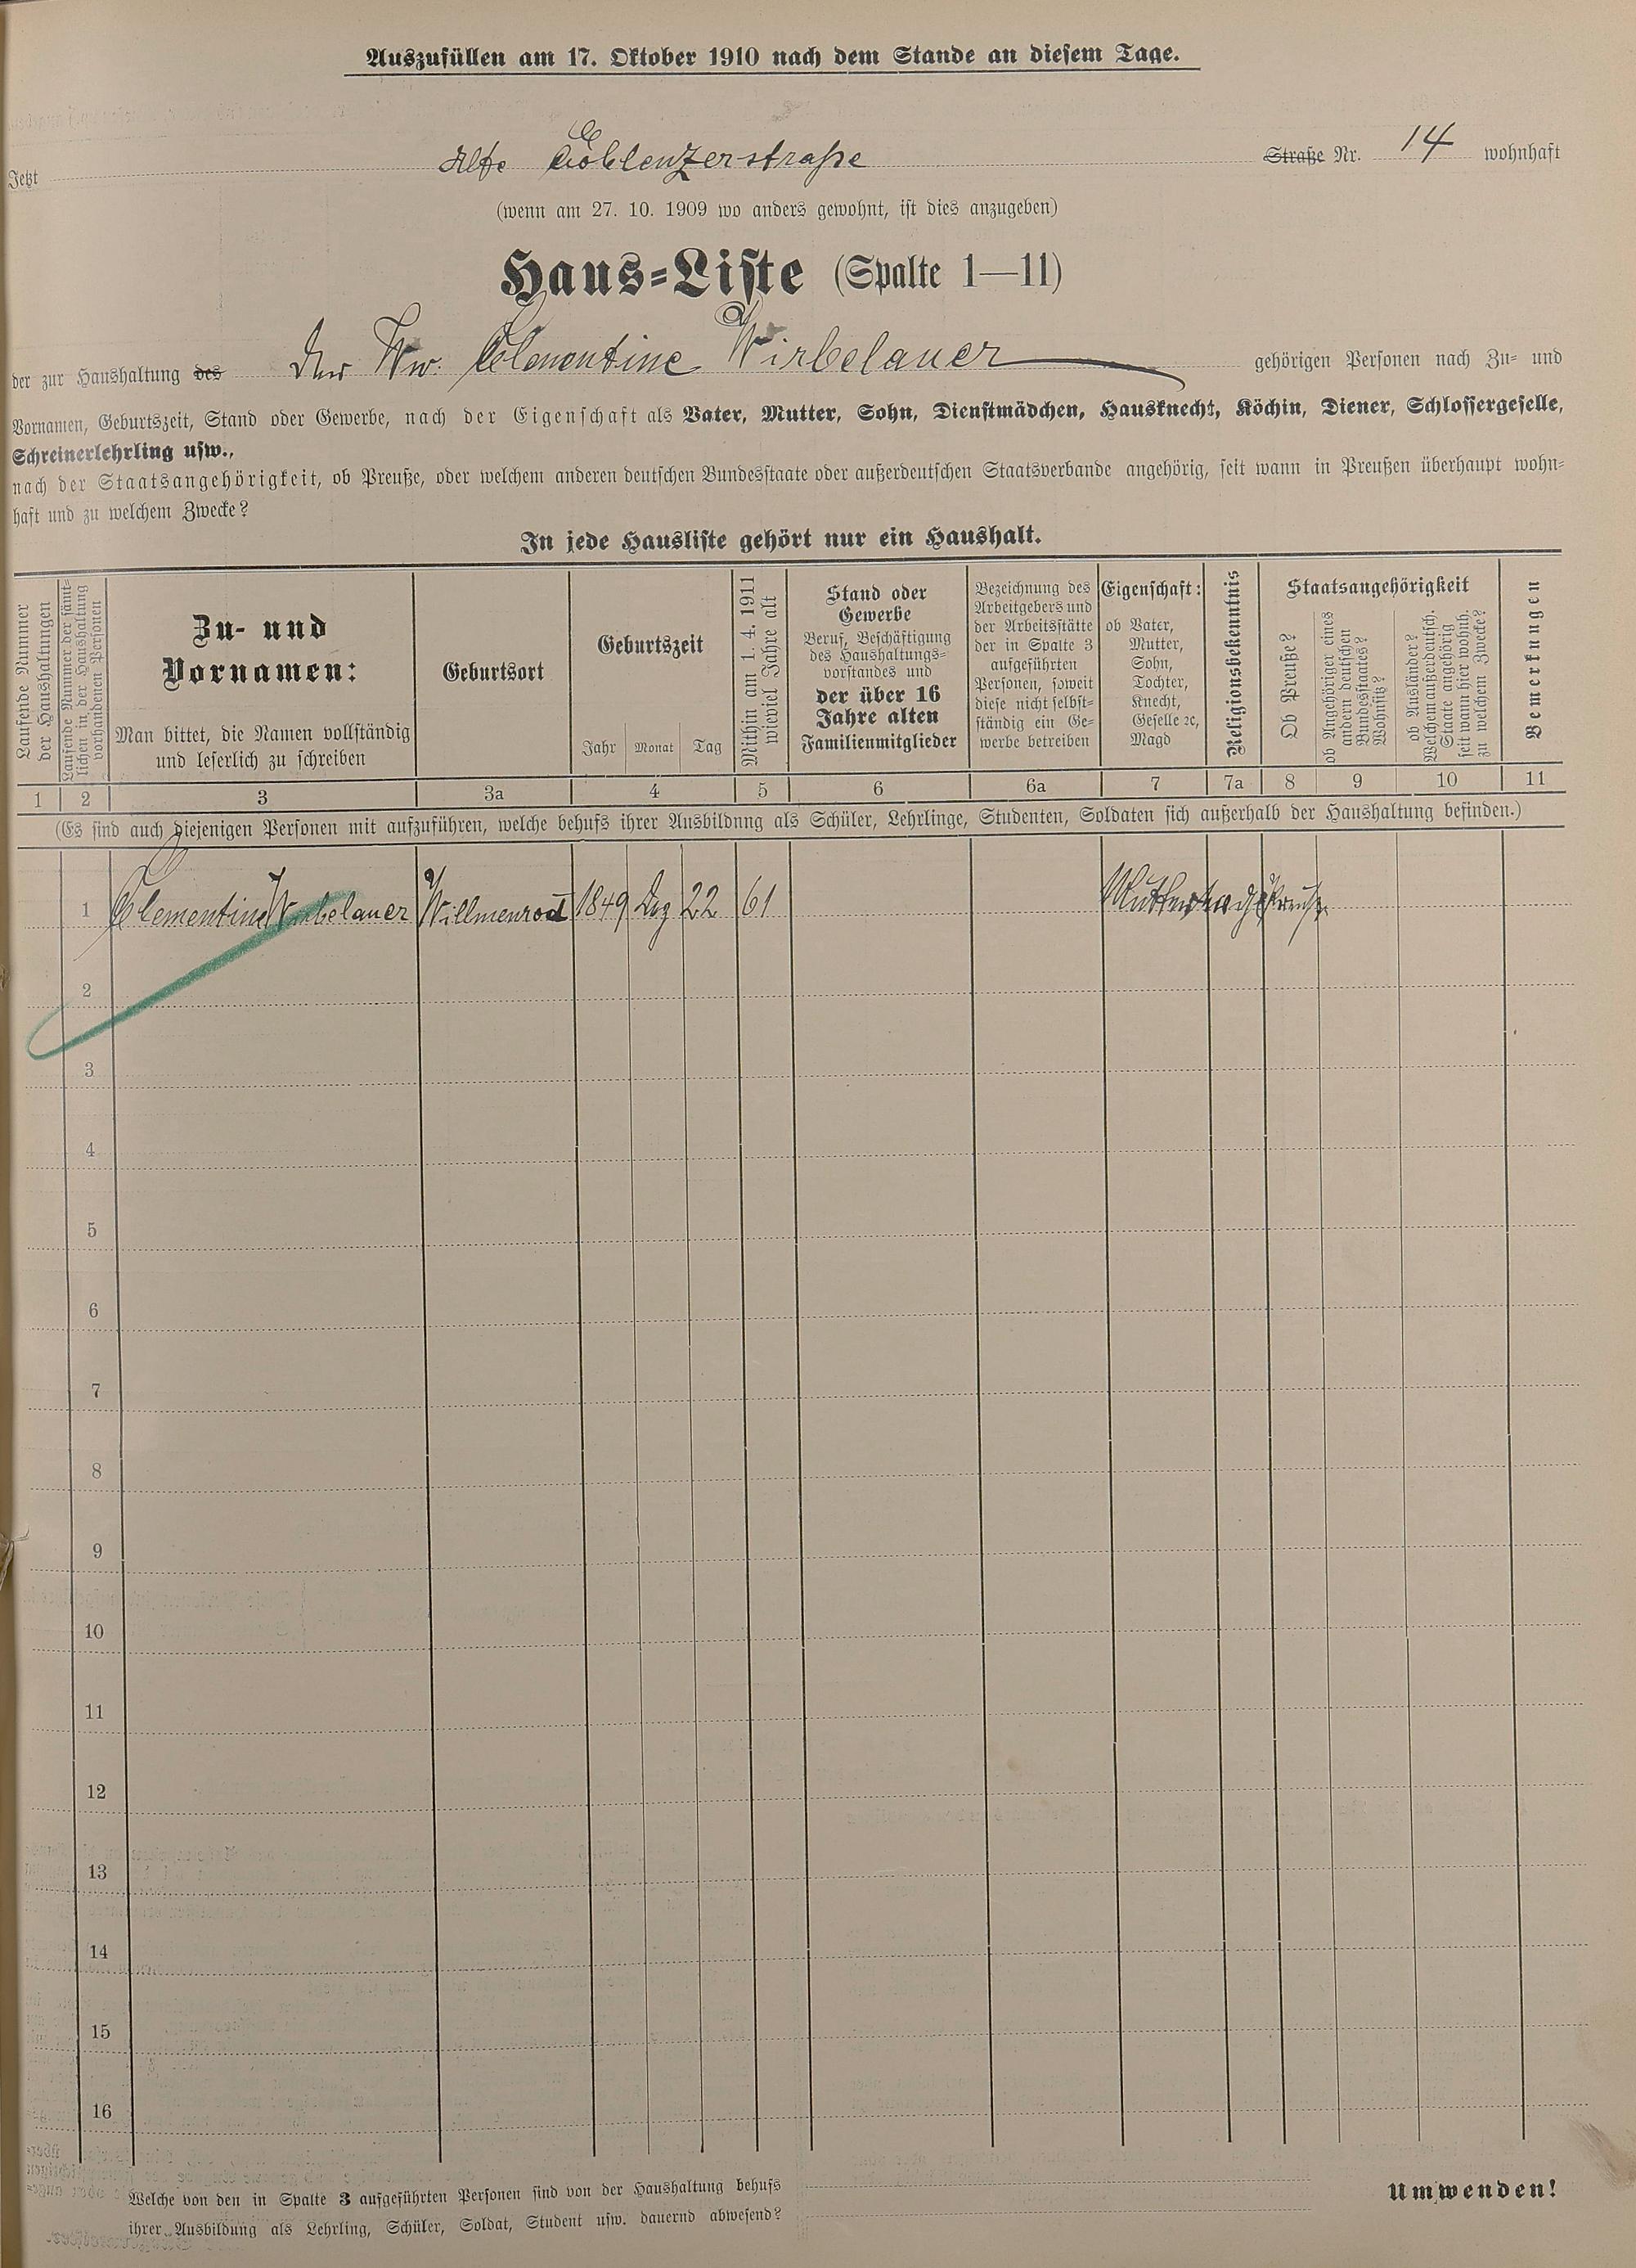 Auszufüllen am 17. Oktober 1910 nach dem Stande an diesem Tage.
Jetzt Alte Coblenzerstraße Straße Nr. 14 wohnhaft
(wenn am 27. 10. 1909 wo anders gewohnt, ist dies anzugeben)
Haus-Liste (Spalte 1—11)
der zur Haushaltung des Der Ww. Clementine Wirbelauer gehörigen Personen nach Zu- und
Vornamen, Geburtszeit, Stand oder Gewerbe, nach der Eigenschaft als Vater, Mutter, Sohn, Dienstmädchen, Hausknecht, Köchin, Diener, Schlossergeselle,
Schreinerlehrling usw.,
nach der Staatsangehörigkeit, ob Preuße, oder welchem anderen deutschen Bundesstaate oder außerdeutschen Staatsverbande angehörig, seit wann in Preußen überhaupt wohn-
haft und zu welchem Zwecke?
In jede Hausliste gehört nur ein Haushalt.
Laufende Nummer
der Haushaltungen
Laufende Nummer der sämt-
lichen in der Haushaltung
vorhandenen Personen
Zu- und
Vornamen:
Man bittet, die Namen vollständig
und leserlich zu schreiben
Geburtsort
Geburtszeit
Jahr Monat Tag
Mithin am 1. 4. 1911
wieviel Jahre alt
Stand oder
Gewerbe
Beruf, Beschäftigung
des Haushaltungs-
vorstandes und
der über 16
Jahre alten
Familienmitglieder
Bezeichnung des
Arbeitgebers und
der Arbeitsstätte
der in Spalte 3
aufgeführten
Personen, soweit
diese nicht selbst-
ständig ein Ge-
werbe betreiben
Eigenschaft:
ob Vater,
Mutter,
Sohn,
Tochter,
Knecht,
Geselle ꝛc,
Magd
Religionsbekenntnis
Staatsangehörigkeit
Ob Preuße?
ob Angehöriger eines
andern deutschen
Bundesstaates?
Wohnsitz?
ob Ausländer?
Welchem außerdeutsch.
Staate angehörig
seit wann hier wohnh.
zu welchem Zwecke?
Bemerkungen
1 2 3 3a 4 5 6 6a 7 7a 8 9 10 11
(Es sind auch diejenigen Personen mit aufzuführen, welche behufs ihrer Ausbildnng als Schüler, Lehrlinge, Studenten, Soldaten sich außerhalb der Haushaltung befinden.)
1 Clementine Wirbelauer Willmenrod 1849 Dez 22 61 Mutter kath Preuße
2
3
4
5
6
7
8
9
10
11
12
13
14
15
16
Welche von den in Spalte 3 aufgeführten Personen sind von der Haushaltung behufs
ihrer Ausbildung als Lehrling, Schüler, Soldat, Student usw. dauernd abwesend?
Umwenden!